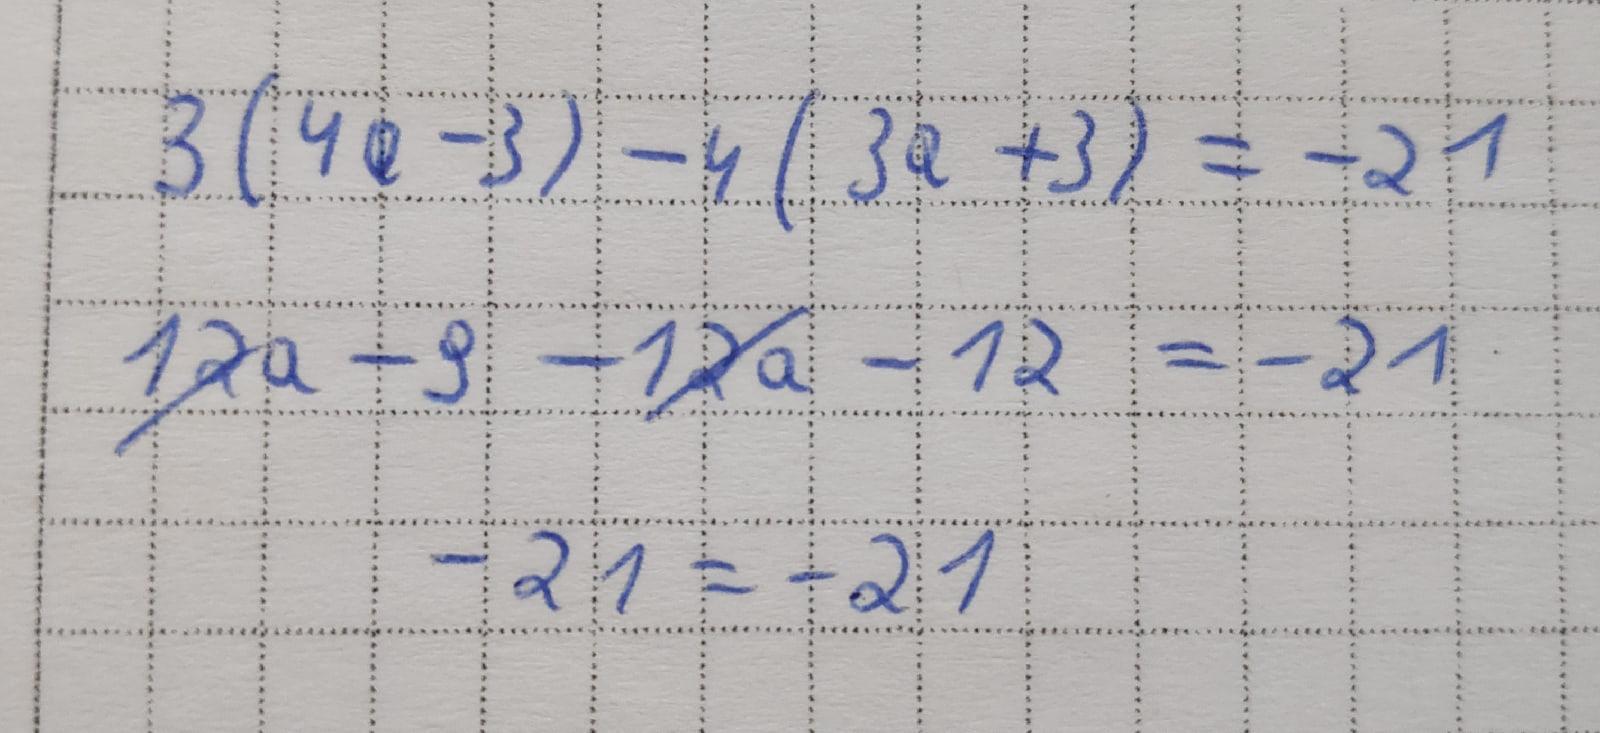 3(4a-3) -4(3a+3) = -21
12a - 9 - 12a - 12 = -21
-21 = -21